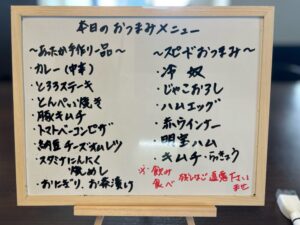 本日のおつまみメニュー
～あったか手作り一品～
・カレー(中辛)
・とろろステーキ
・とんぺい焼き
・豚キムチ
・トマトベーコンピザ
・納豆チーズオムレツ
・スタミナにんにく
焼めし
・おにぎり、お茶漬け
～スピードおつまみ～
・冷奴
・じゃこおろし
・ハムエッグ
・赤ウインナー
・明宝ハム
・キムチ・らっきょう
※飲み
食べ
残しはご遠慮下さい
ませ